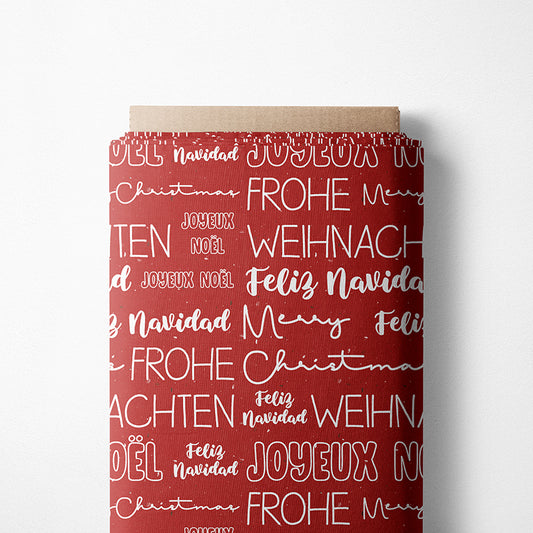 OËL Navidad JOYEUX NO
Christmas FROHE Merry
JOYEUX
NOËL
ACHTEN WEIHNACHT
JOYEUX NOËL Feliz Navida
z Navidad Merry Feliz
FROHE Christma
ACHTEN Feliz
Navidad WEIHNACH
OËL Feliz
Navidad JOYEUX NO
Christmas FROHE Merry
JOYEUX